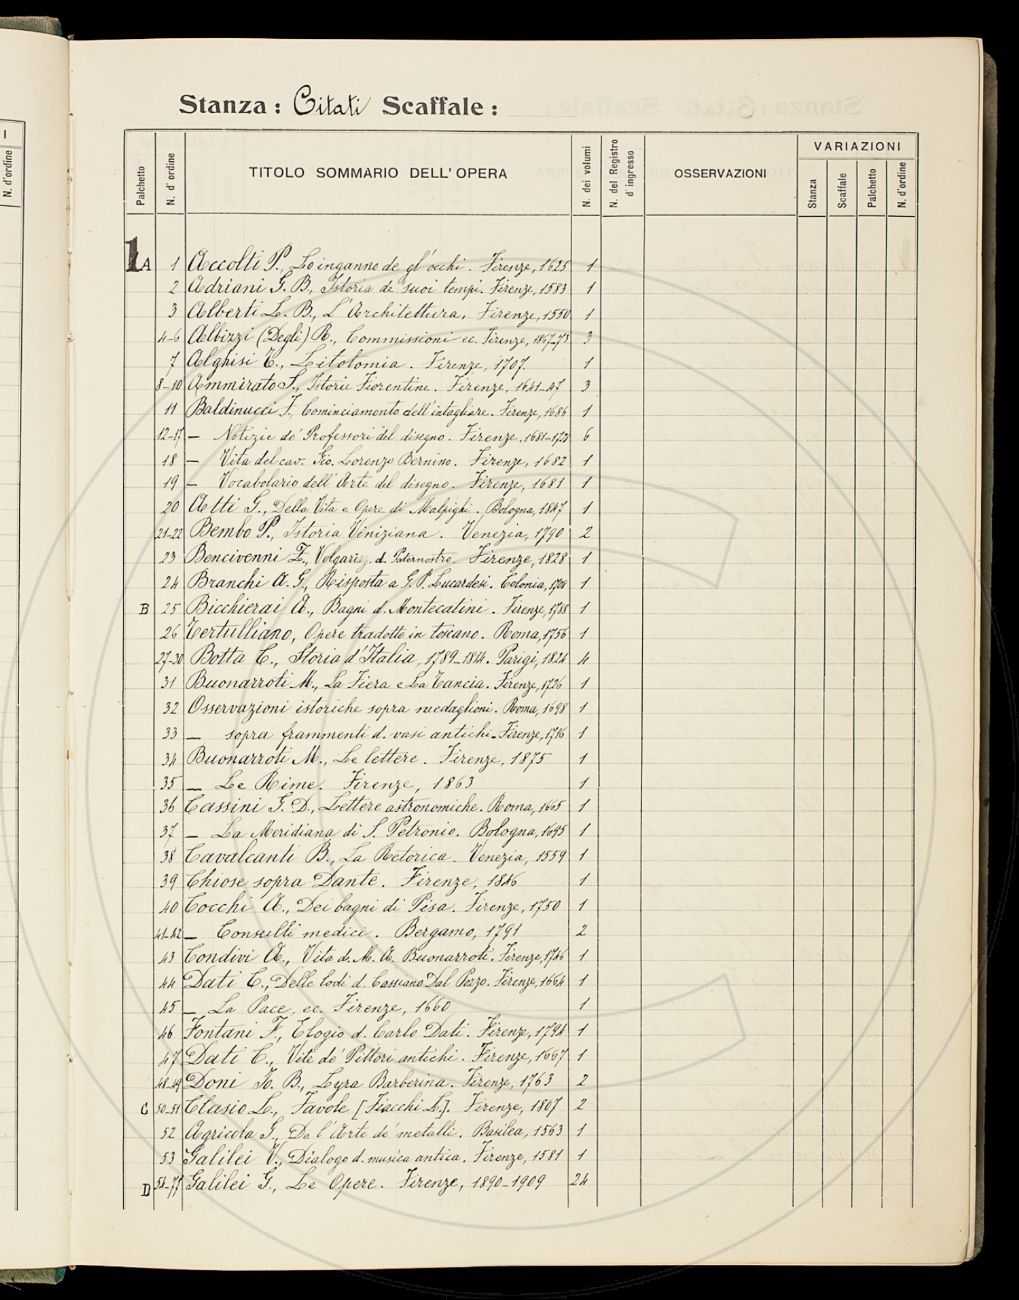 I
N. d'ordine
Stanza: Citati Scaffale:
Palchetto N. d'ordine TITOLO SOMMARIO DELL'OPERA N. dei volumi N. del Registro d'ingresso OSSERVAZIONI VARIAZIONI
Stanza Scaffale Palchetto N. d'ordine
1A 1 Accolti P., Lo inganno de gl'occhi. Firenze, 1625 1
2 Adriani G. B., Istoria de' suoi tempi. Firenze, 1583 1
3 Alberti L. B., L'Architettura, Firenze, 1550 1
4-6 Albizzi (Degli) R., Commissioni ec. Firenze, 1867-73 3
7 Alghisi T., Litotomia. Firenze, 1707. 1
8-10 Ammirato S., Istorie Fiorentine. Firenze, 1641-47 3
11 Baldinucci F., Cominciamento dell'intagliare. Firenze, 1686 1
12-17 — Notizie de' Professori del disegno. Firenze, 1681-1728 6
18 — Vita del cav. Gio. Lorenzo Bernino. Firenze, 1682 1
19 — Vocabolario dell'Arte del disegno. Firenze, 1681 1
20 Atti G., Della Vita e Opere di Malpighi. Bologna, 1847 1
21-22 Bembo P., Istoria Viniziana. Venezia, 1790 2
23 Bencivenni Z., Volgariz. d. Paternostro. Firenze, 1828 1
24 Branchi A. G., Risposta a G. P. Lucardesi. Colonia, 1708 1
B 25 Bicchierai A., Bagni d. Montecatini. Firenze, 1788 1
26 Tertulliano, Opere tradotte in toscano. Roma, 1756 1
27-30 Botta C., Storia d'Italia, 1789-1814. Parigi, 1824 4
31 Buonarroti M., La Fiera e La Tancia. Firenze, 1726 1
32 Osservazioni istoriche sopra medaglioni. Roma, 1698 1
33 — sopra frammenti d. vasi antichi. Firenze, 1716 1
34 Buonarroti M., Le lettere. Firenze, 1875 1
35 — Le Rime. Firenze, 1863 1
36 Cassini G. D., Lettere astronomiche. Roma, 1665 1
37 — La Meridiana di S. Petronio. Bologna, 1695 1
38 Cavalcanti B., La Retorica. Venezia, 1559 1
39 Chiose sopra Dante. Firenze, 1846 1
40 Cocchi A., Dei bagni di Pisa. Firenze, 1750 1
41-42 — Consulti medici. Bergamo, 1791 2
43 Condivi A., Vita d. M. A. Buonarroti. Firenze, 1746 1
44 Dati C., Delle lodi d. Cassiano Dal Pozzo. Firenze, 1664 1
45 — La Pace, ec. Firenze, 1660 1
46 Fontani F., Elogio d. Carlo Dati. Firenze, 1794 1
47 Dati C., Vite de' Pittori antichi. Firenze, 1667 1
48-49 Doni G. B., Lyra Barberina. Firenze, 1763 2
C 50-51 Clasio L., Favole [Fiacchi L.]. Firenze, 1807 2
52 Agricola G., De l'Arte de' metalli. Basilea, 1563 1
53 Galilei V., Dialogo d. musica antica. Firenze, 1581 1
D 54-77 Galilei G., Le Opere. Firenze, 1890-1909 24